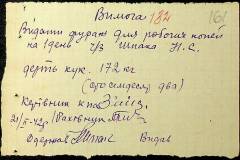 Вимога 182
162
Видати фураж для робочих коней
на 1 день ч/з Шпака Н.С.
дерть кук. 172 кг
(сто сімдесят два)
Керівник
21/II-42р. Рахівник
Одержав Шпак Видав